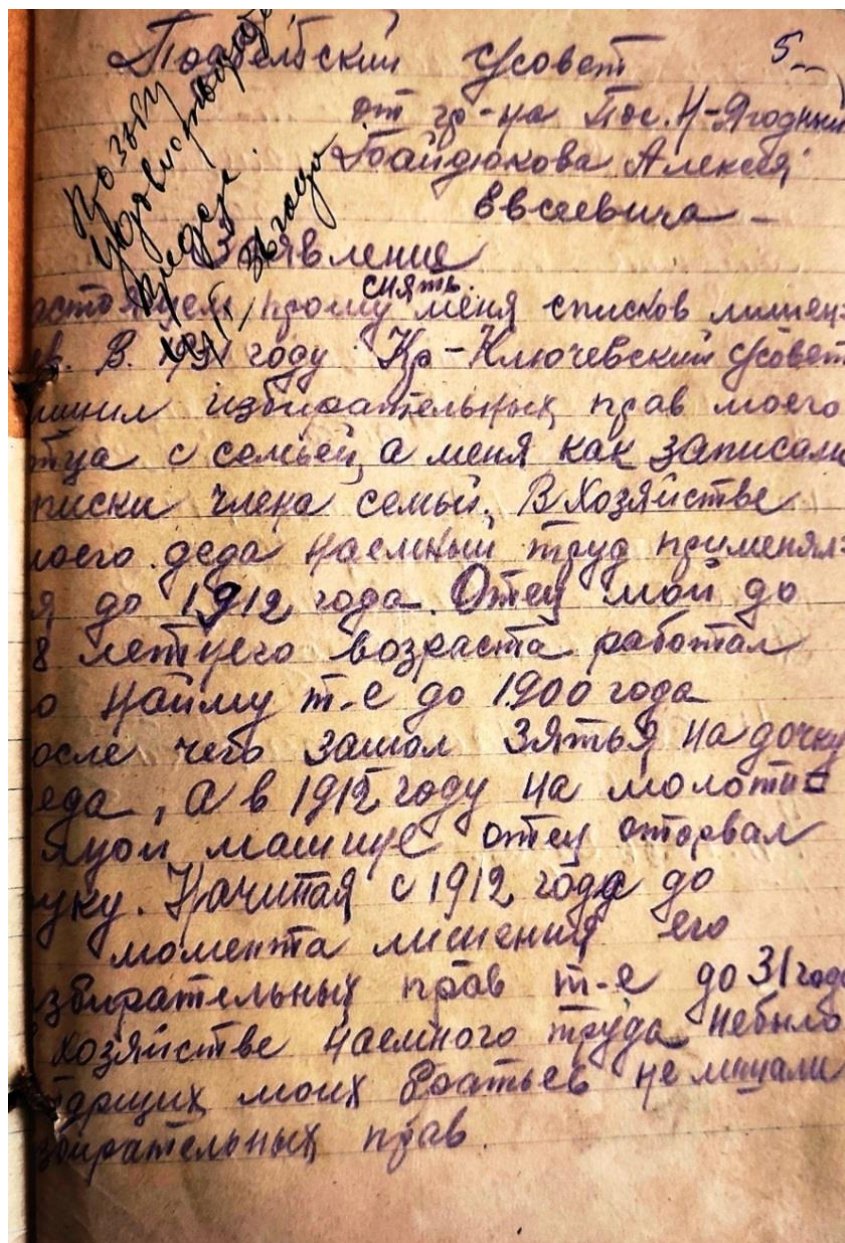 Подбельский с/совет 5
от гр-на Пос. Н-Ягодный
Байдюкова Алексея
Евсеевича
Заявление
астоящем прошу снять меня списков лишен=
В. 1931 году Кр-Ключевский с/совет
ишил избирательных прав моего
тца с семьей, а меня как записали
писки члена семьи. В хозяйстве
моего деда наемный труд применял=
я до 1912 года. Отец мой до
8 летнего возраста работал
о найму т-е до 1900 года
осле чего зашол зятья на дочку
еда, а в 1915 году на молоти=
яной машине отец оторвал
уку. Начиная с 1912 года до
момента лишения его
збирательных прав т-е до 31 года
хозяйстве наемного труда небыло
тарших моих братьев не лишали
збирательных прав.